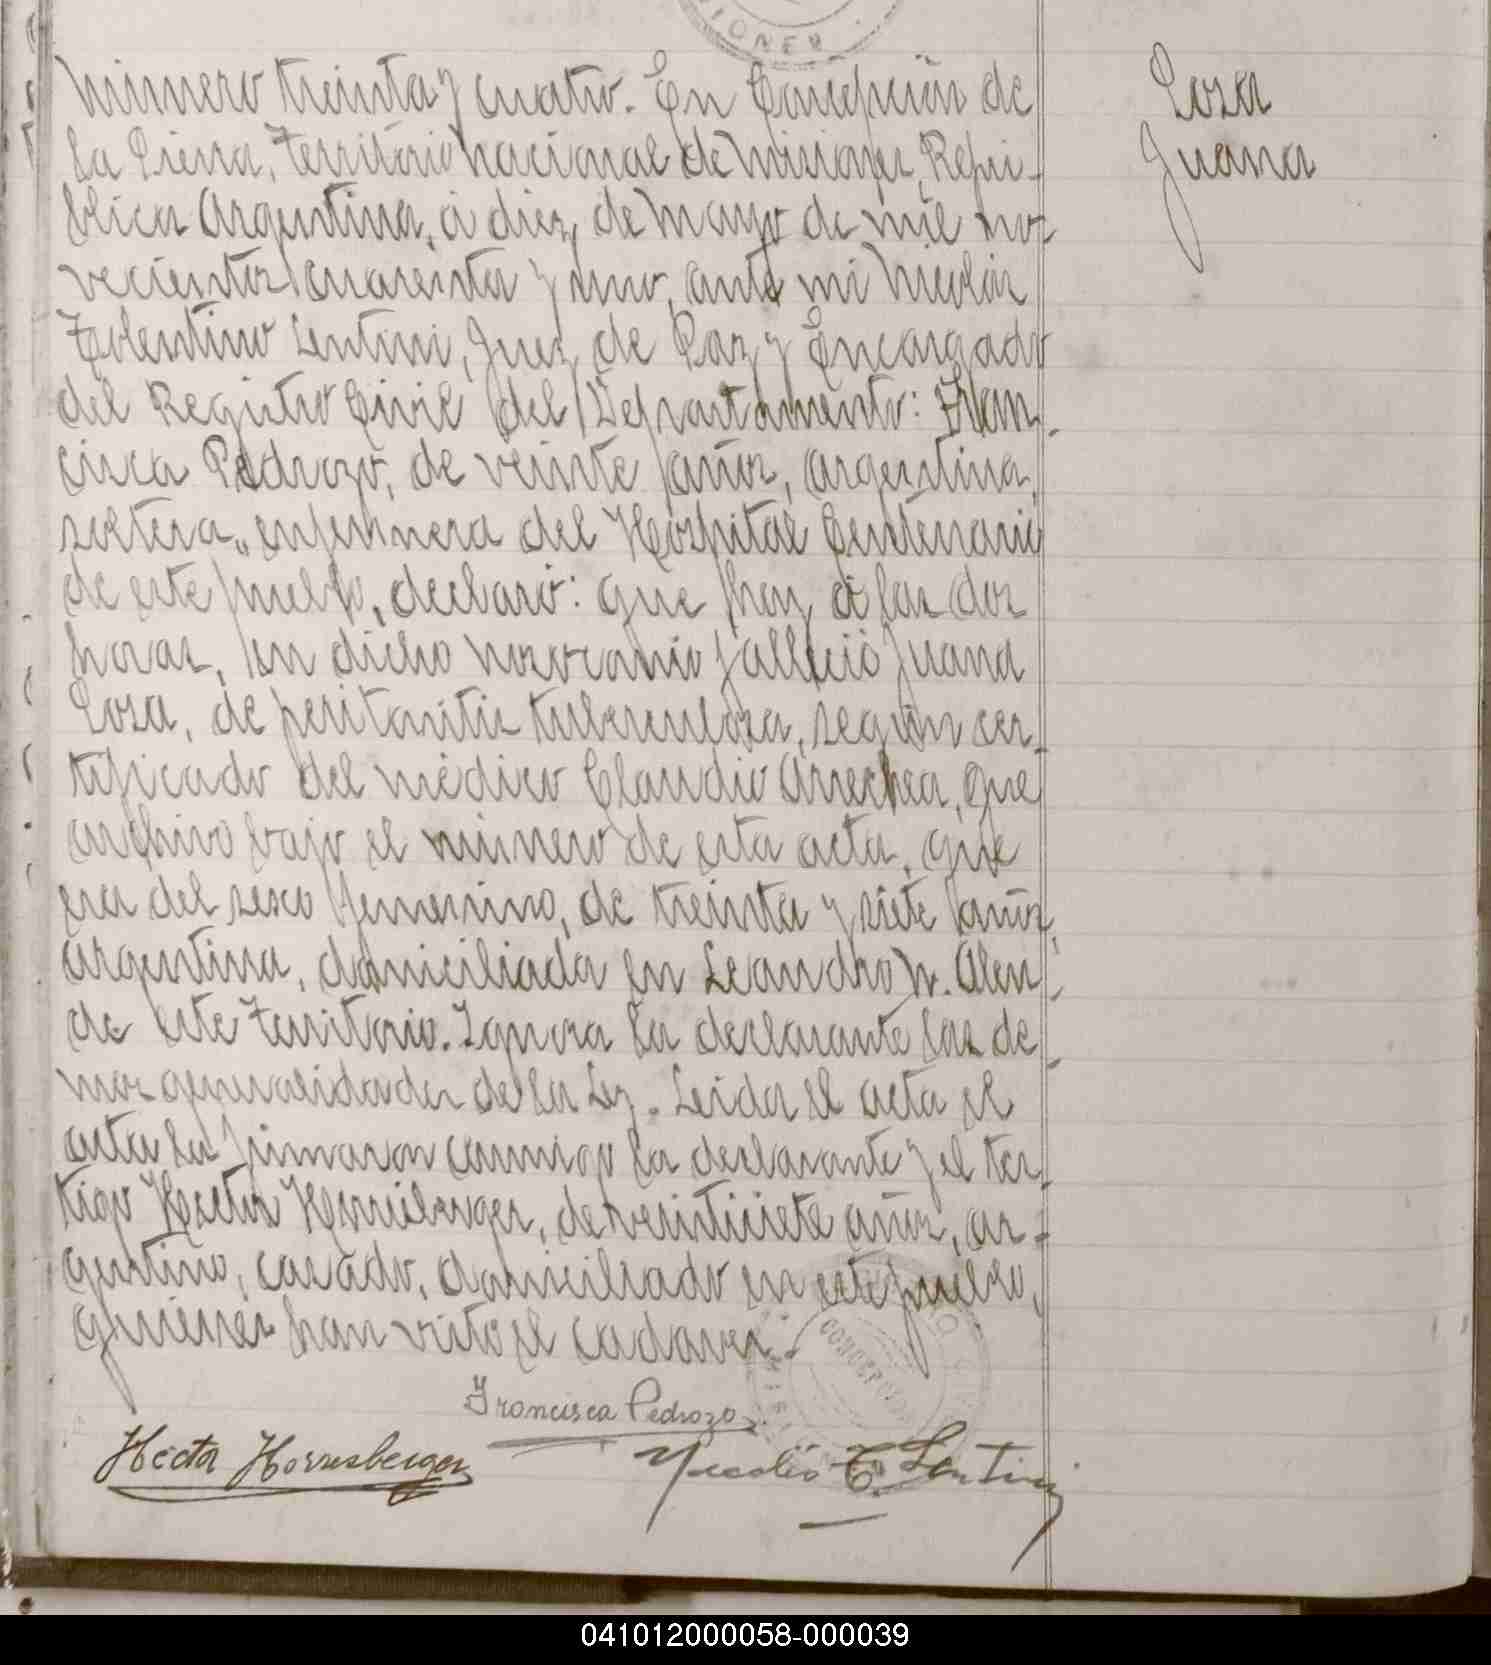 IONES
Número treinta y cuatro. En Concepción de
la Sierra, Territorio Nacional de Misiones, Repú-
blica Argentina, a diez de Mayo de mil no-
vecientos cuarenta y uno, ante mi Nicolás
Tolentino Lentini, Juez de Paz y Encargado
del Registro Civil del Departamento: Fran-
cisca Pedrozo, de veinte años, argentina,
soltera, enfermera del Hospital Centenario
de este pueblo, declaró: que hoy a las dos
horas, en dicho nosocomio falleció Juana
Sosa, de peritonitis tuberculosa, según cer-
tificado del médico Claudio Arrechea, que
archivo bajo el número de esta acta, que
era del sexo femenino, de treinta y siete años,
argentina, domiciliada en Leandro N. Alem
de este Territorio. Ignora la declarante las de-
mas generalidades de la Ley. Leida el acta el
acta la firmaron conmigo la declarante y el tes-
tigo Hector Horrisberger, de veintisiete años, ar-
gentino, casado, domiciliado en este pueblo,
quienes han visto el cadaver.
Francisca Pedrozo
Hector Horrisberger
Nicolás T. Lentini
Sosa
Juana
CONCEPCION
041012000058-000039